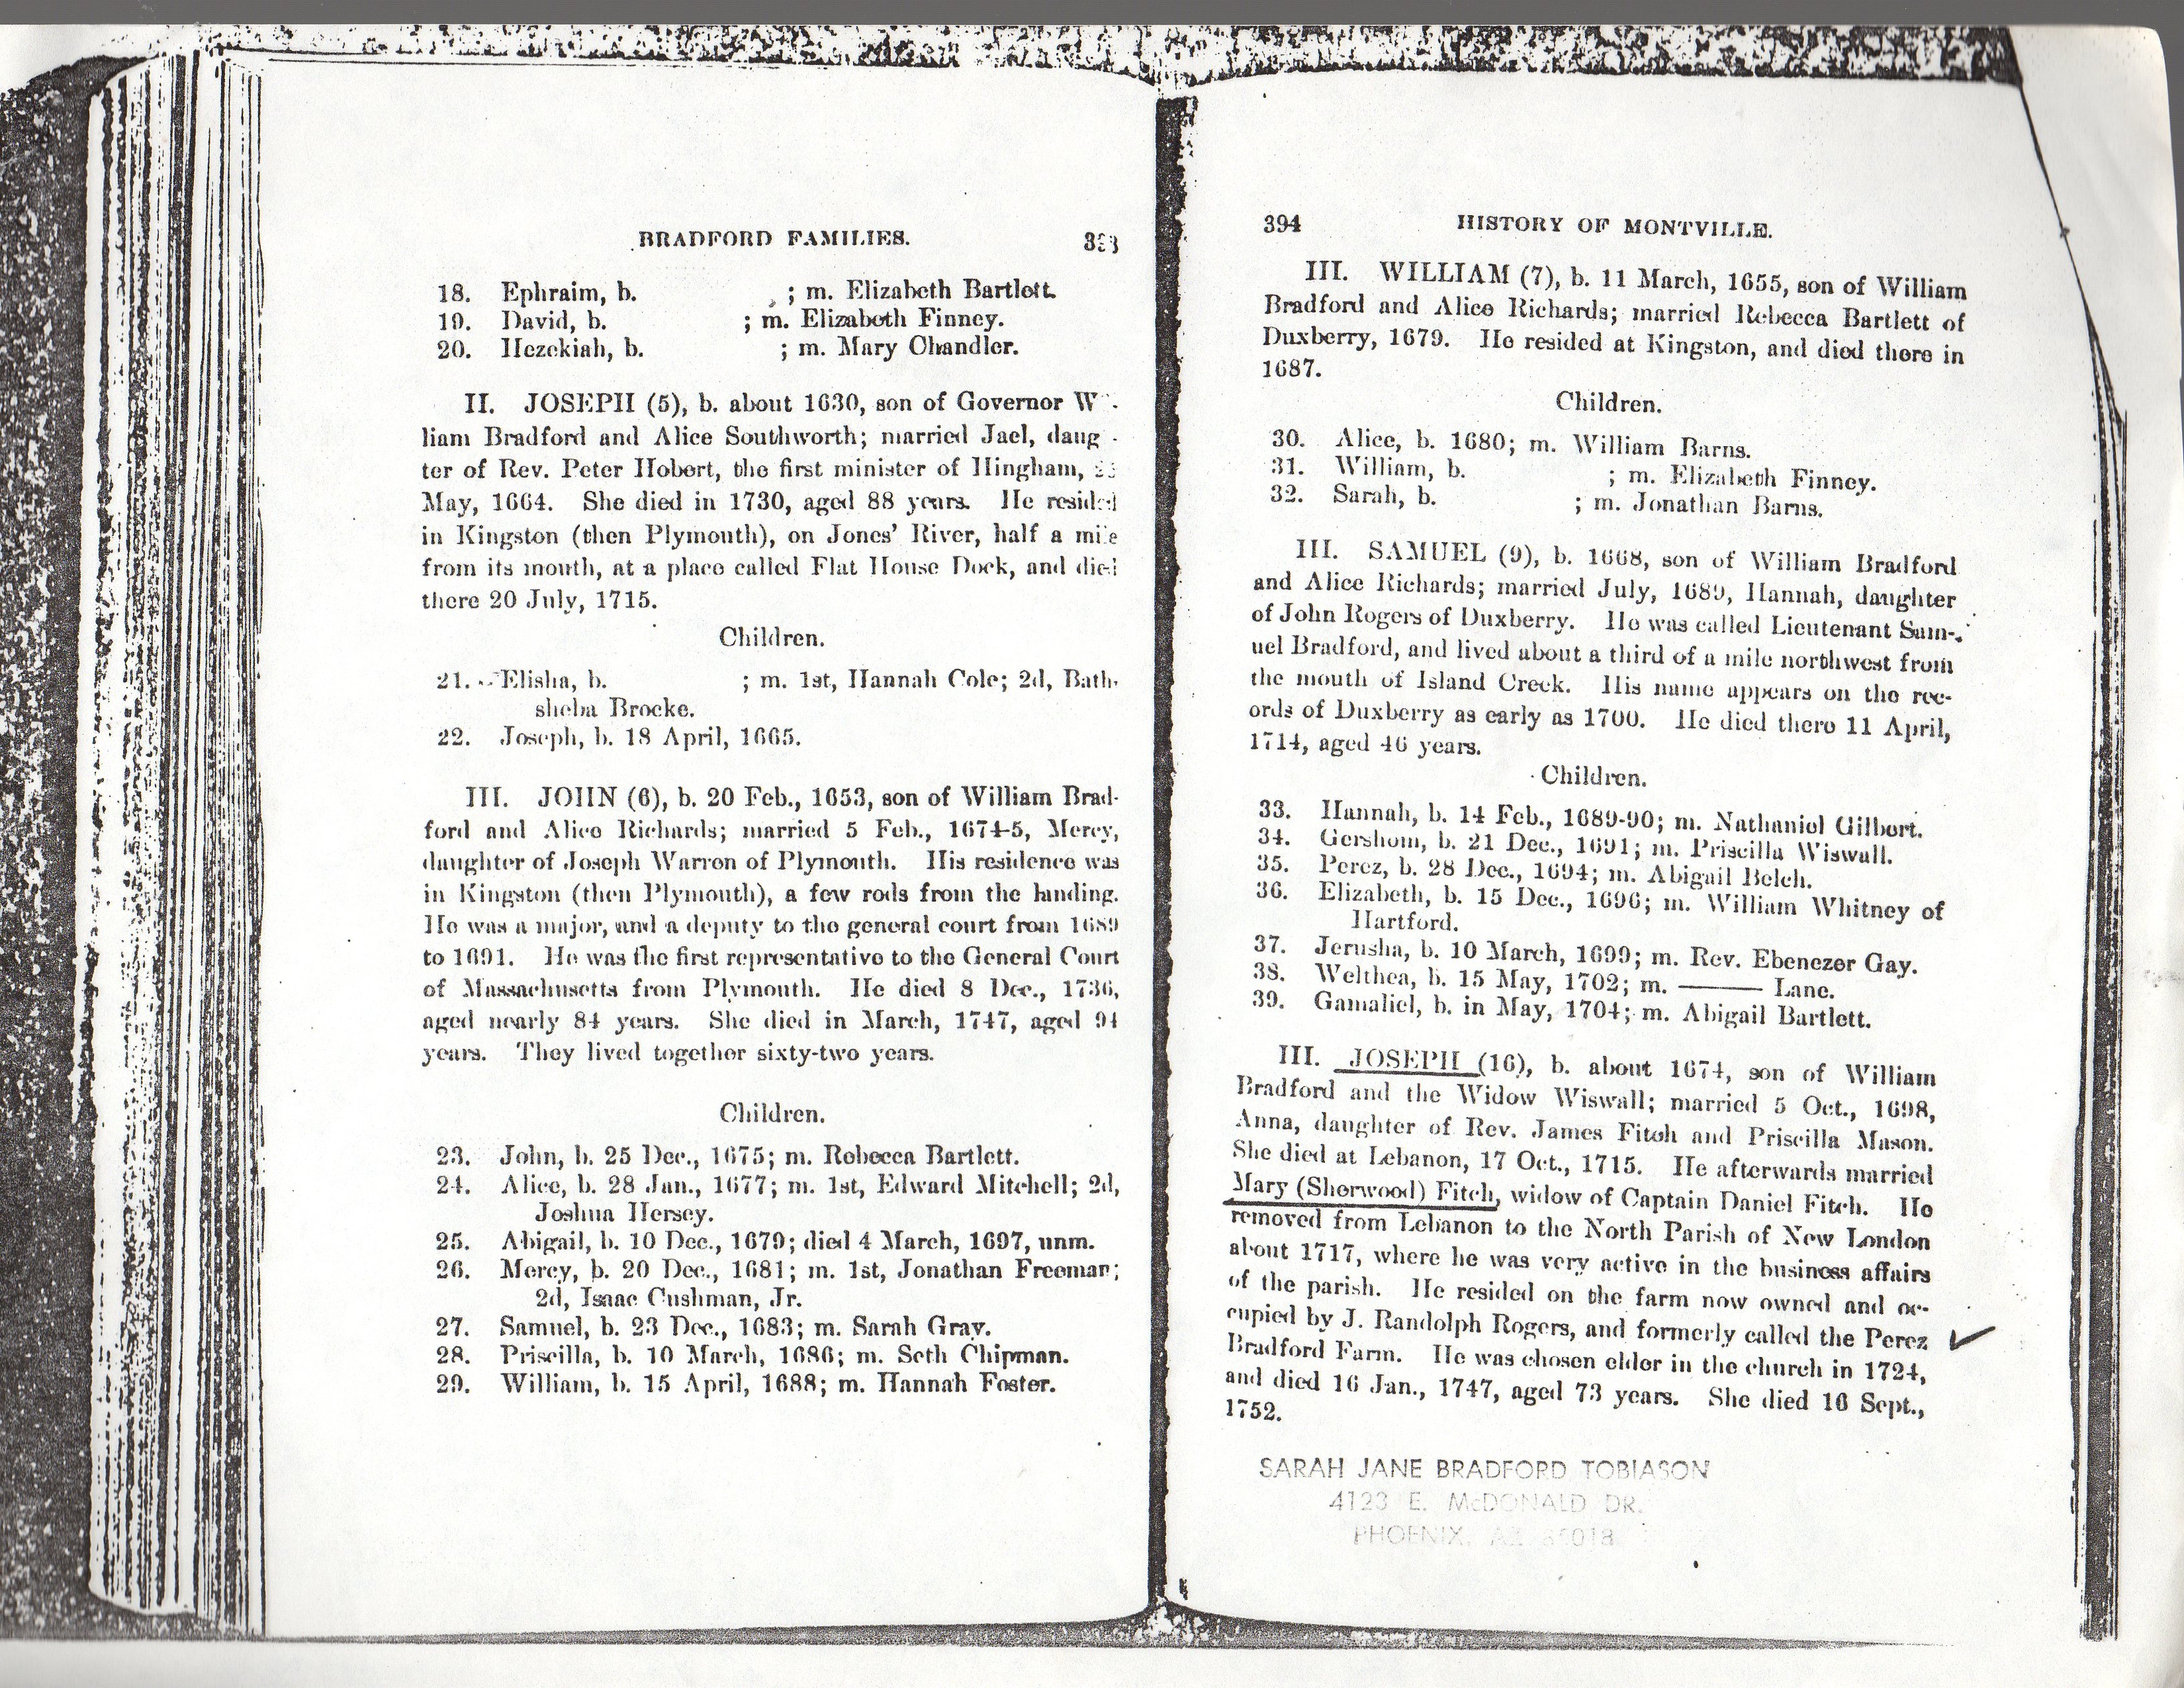 BRADFORD FAMILIES.
18. Ephraim, b. ; m. Elizabeth Bartlett.
19. David, b. ; m. Elizabeth Finney.
20. Hezekiah, b. ; m. Mary Chandler.
II. JOSEPH (5), b. about 1630, son of Governor W
liam Bradford and Alice Southworth; married Jael, daug
ter of Rev. Peter Hobert, the first minister of Hingham,
May, 1664. She died in 1730, aged 88 years. He resided
in Kingston (then Plymouth), on Jones' River, half a mile
from its mouth, at a place called Flat House Dock, and died
there 20 July, 1715.
Children.
21. Elisha, b. ; m. 1st, Hannah Cole; 2d, Bath-
sheba Brocke.
22. Joseph, b. 18 April, 1665.
III. JOHN (6), b. 20 Feb., 1653, son of William Brad-
ford and Alice Richards; married 5 Feb., 1674-5, Mercy,
daughter of Joseph Warren of Plymouth. His residence was
in Kingston (then Plymouth), a few rods from the landing.
He was a major, and a deputy to the general court from 1689
to 1691. He was the first representative to the General Court
of Massachusetts from Plymouth. He died 8 Dec., 1736,
aged nearly 84 years. She died in March, 1747, aged 94
years. They lived together sixty-two years.
Children.
23. John, b. 25 Dec., 1675; m. Rebecca Bartlett.
24. Alice, b. 28 Jan., 1677; m. 1st, Edward Mitchell; 2d,
Joshua Hersey.
25. Abigail, b. 10 Dec., 1679; died 4 March, 1697, unm.
26. Mercy, b. 20 Dec., 1681; m. 1st, Jonathan Freeman;
2d, Isaac Cushman, Jr.
27. Samuel, b. 23 Dec., 1683; m. Sarah Gray.
28. Priscilla, b. 10 March, 1686; m. Seth Chipman.
29. William, b. 15 April, 1688; m. Hannah Foster.
394 HISTORY OF MONTVILLE.
III. WILLIAM (7), b. 11 March, 1655, son of William
Bradford and Alice Richards; married Rebecca Bartlett of
Duxberry, 1679. He resided at Kingston, and died there in
1687.
Children.
30. Alice, b. 1680; m. William Barns.
31. William, b. ; m. Elizabeth Finney.
32. Sarah, b. ; m. Jonathan Barns.
III. SAMUEL (9), b. 1668, son of William Bradford
and Alice Richards; married July, 1689, Hannah, daughter
of John Rogers of Duxberry. He was called Lieutenant Sam-
uel Bradford, and lived about a third of a mile northwest from
the mouth of Island Creek. His name appears on the rec-
ords of Duxberry as early as 1700. He died there 11 April,
1714, aged 46 years.
Children.
33. Hannah, b. 14 Feb., 1689-90; m. Nathaniel Gilbert.
34. Gershom, b. 21 Dec., 1691; m. Priscilla Wiswall.
35. Perez, b. 28 Dec., 1694; m. Abigail Belch.
36. Elizabeth, b. 15 Dec., 1696; m. William Whitney of
Hartford.
37. Jerusha, b. 10 March, 1699; m. Rev. Ebenezer Gay.
38. Welthea, b. 15 May, 1702; m. ——— Lane.
39. Gamaliel, b. in May, 1704; m. Abigail Bartlett.
III. JOSEPH (16), b. about 1674, son of William
Bradford and the Widow Wiswall; married 5 Oct., 1698,
Anna, daughter of Rev. James Fitch and Priscilla Mason.
She died at Lebanon, 17 Oct., 1715. He afterwards married
Mary (Sherwood) Fitch, widow of Captain Daniel Fitch. He
removed from Lebanon to the North Parish of New London
about 1717, where he was very active in the business affairs
of the parish. He resided on the farm now owned and oc-
cupied by J. Randolph Rogers, and formerly called the Perez
Bradford Farm. He was chosen elder in the church in 1724,
and died 16 Jan., 1747, aged 73 years. She died 16 Sept.,
1752.
SARAH JANE BRADFORD TOBIASON
4123 E. McDONALD DR.
PHOENIX, AZ 85018